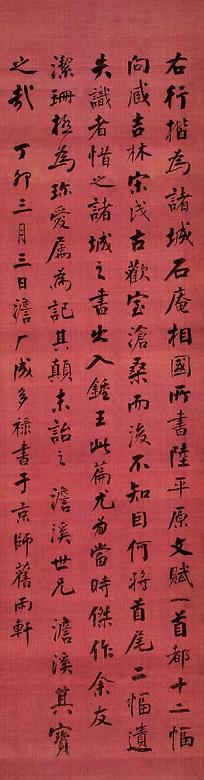 右行楷為諸城石庵相國所書陸平原文賦一首都十二幅
向臧吉林宋氏古歡室滄桑而後不知因何將首尾二幅遺
失識者惜之諸城之書出入鍾王此篇尤為當時傑作余友
潔珊極為珍愛屬為記其顛末詒之澹溪世兄澹溪其寶
之哉 丁卯三月三日澹厂成多祿書于京師舊雨軒